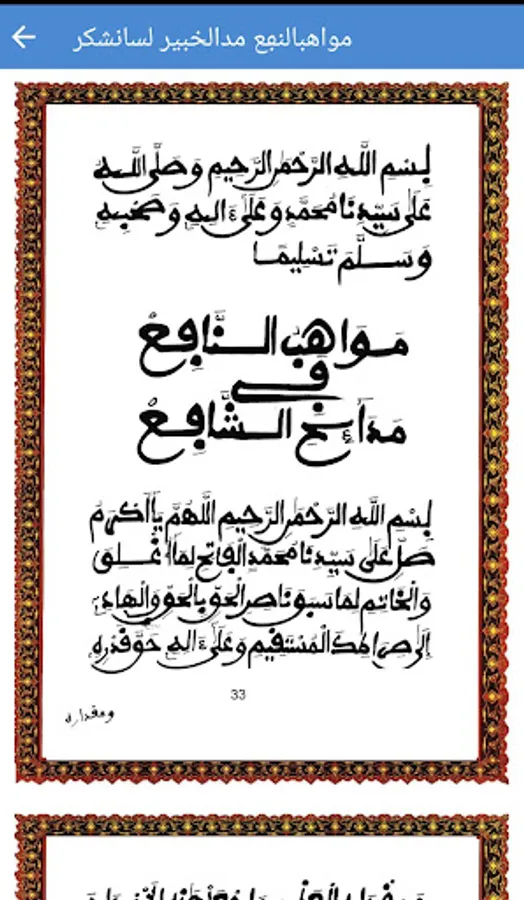 مواهبالنفع مدالخبير لسانشكر
بِسْمِ اللَّهِ الرَّحْمَٰنِ الرَّحِيمِ وَصَلَّى اللَّهُ
عَلَى سَيِّدِنَا مُحَمَّدٍ وَعَلَىٰ ءَالِهِ وَصَحْبِهِ
وَسَلَّمَ تَسْلِيمًا
مَوَاهِبُ النَّافِعُ
فِي
مَدَائِحِ الشَّافِعُ
بِسْمِ اللَّهِ الرَّحْمَٰنِ الرَّحِيمِ اللَّهُمَّ يَا أَكْرَمُ
صَلِّ عَلَى سَيِّدِنَا مُحَمَّدٍ الْفَاتِحِ لِمَا أُغْلِقَ
وَالْخَاتِمِ لِمَا سَبَقَ نَاصِرِ الْحَقِّ بِالْحَقِّ وَالْهَادِي
إِلَى صِرَاطِكَ الْمُسْتَقِيمِ وَعَلَىٰ ءَالِهِ حَقَّ قَدْرِهِ
33
ومقداره